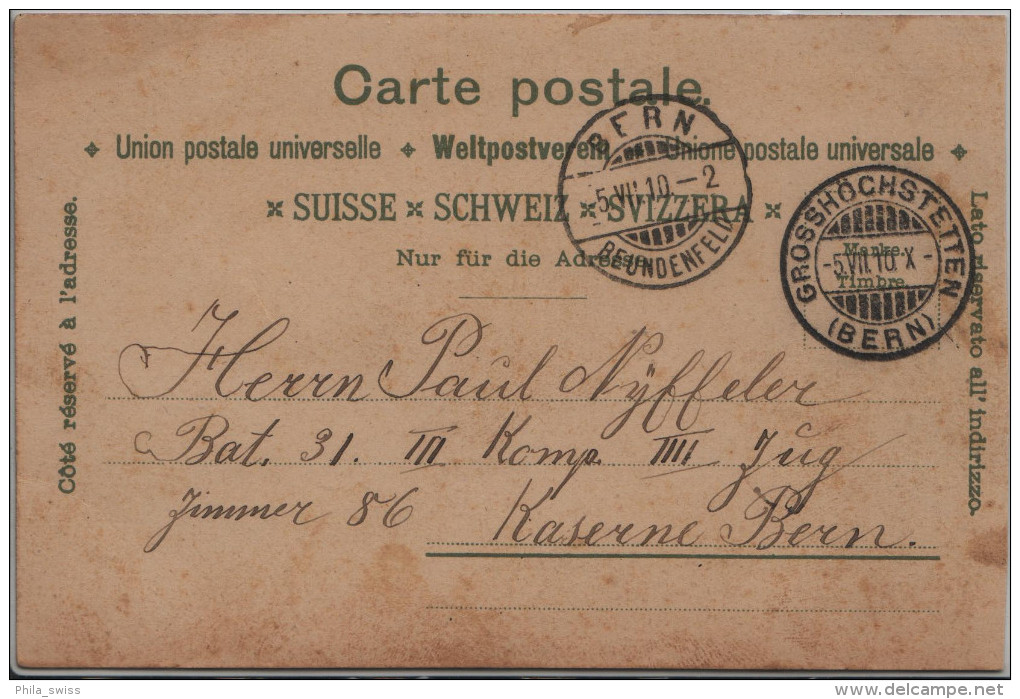 Carte postale.
Union postale universelle Weltpostverein Unione postale universale
SUISSE SCHWEIZ SVIZZERA
Nur für die Adresse.
Côté réservé à l'adresse.
Lato riservato all' indirizzo.
BERN.
-5.VII.10.-2
BEUNDENFELD
GROSSHÖCHSTETTEN
Marke.
-5.VII.10. X-
Timbre.
(BERN)
Herrn Paul Nÿffeler
Bat. 31. III Komp. IIII Zug
Zimmer 86 Kaserne Bern.
Phila_swiss
delcampe.net